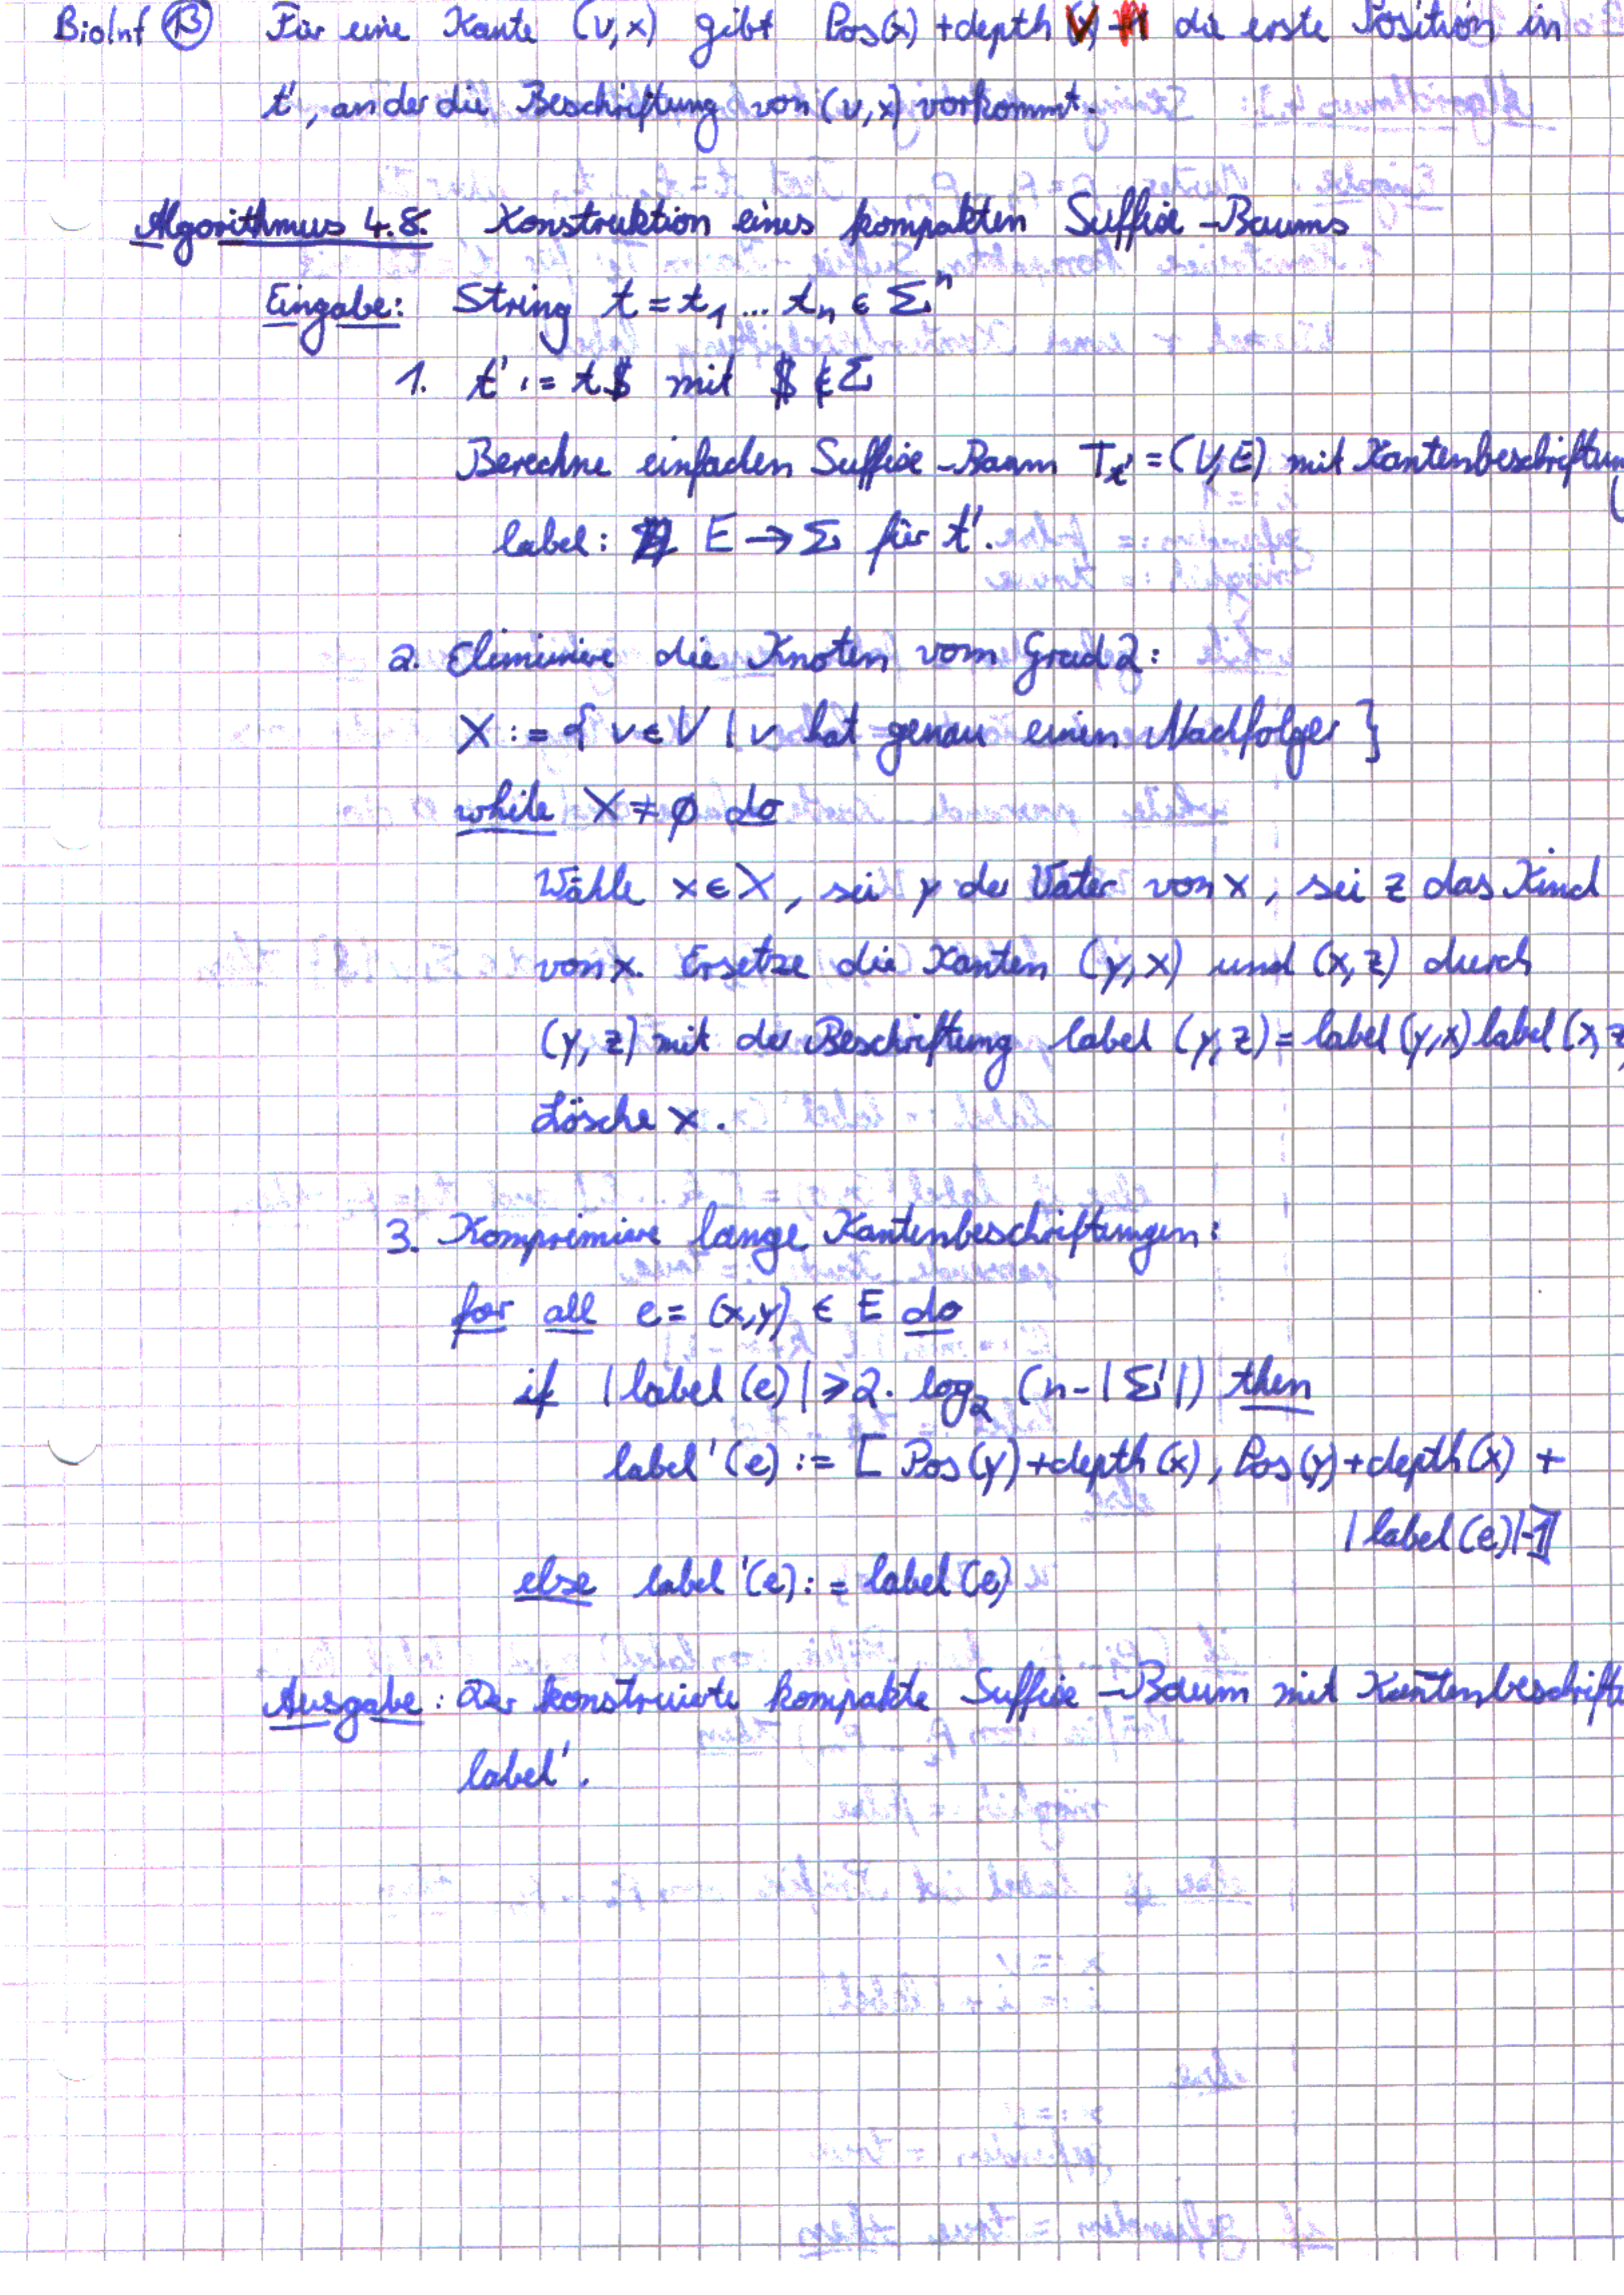 BioInf ⑬ Für eine Kante (v,x) gibt Pos(x) + depth(v) die erste Position in
t', an der die Beschriftung von (v,x) vorkommt.
Algorithmus 4.8. Konstruktion eines kompakten Suffix-Baums
Eingabe: String t = t₁ ... tₙ ∈ Σⁿ
1. t' := t$ mit $ ∉ Σ
Berechne einfachen Suffix-Baum T_t' = (V,E) mit Kantenbeschriftun
label: E → Σ für t'.
2. Eliminiere die Knoten vom Grad 2:
X := { v ∈ V | v hat genau einen Nachfolger }
while X ≠ ∅ do
Wähle x ∈ X, sei y der Vater von x, sei z das Kind
von x. Ersetze die Kanten (y,x) und (x,z) durch
(y,z) mit der Beschriftung label (y,z) = label (y,x) label (x,z
Lösche x.
3. Komprimiere lange Kantenbeschriftungen:
for all e = (x,y) ∈ E do
if |label (e)| ≥ 2 · log₂ (n - |Σ|) then
label' (e) := [ Pos(y) + depth(x), Pos(y) + depth(x) +
|label (e)| -1]
else label' (e) := label (e)
Ausgabe: Der konstruierte kompakte Suffix-Baum mit Kantenbeschriftu
label'.